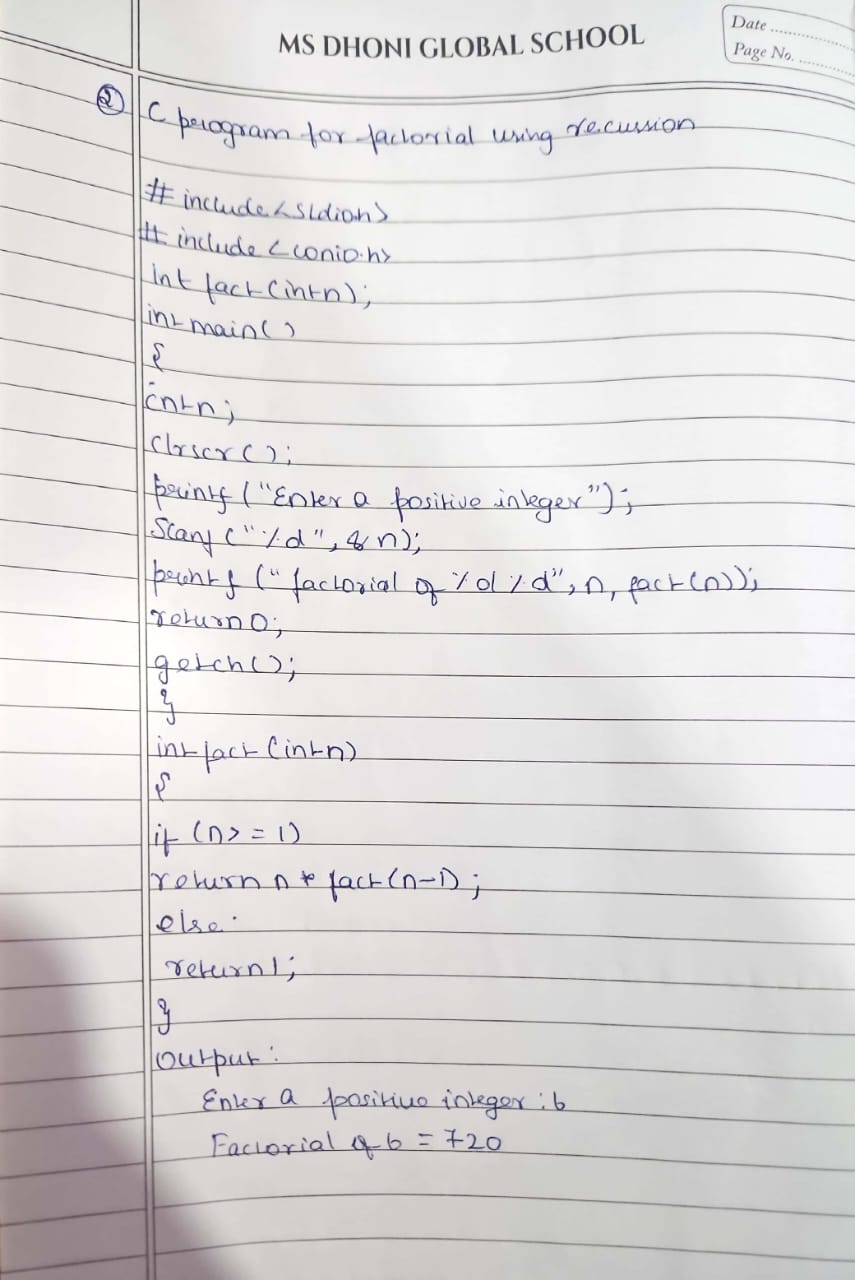 MS DHONI GLOBAL SCHOOL
Date ..............
Page No. ..............
② C program for factorial using recussion
# include<stdioh>
# include <conio.h>
int fact (int n);
int main()
{
int n;
Clrscr();
printf ("Enter a positive integer");
Scanf ("%d", &n);
printf ("factorial of %d %d", n, fact(n));
return 0;
getch();
}
int fact (int n)
{
if (n>=1)
return n * fact (n-1);
else
return 1;
}
Output:
Enter a positive integer : 6
Factorial of 6 = 720